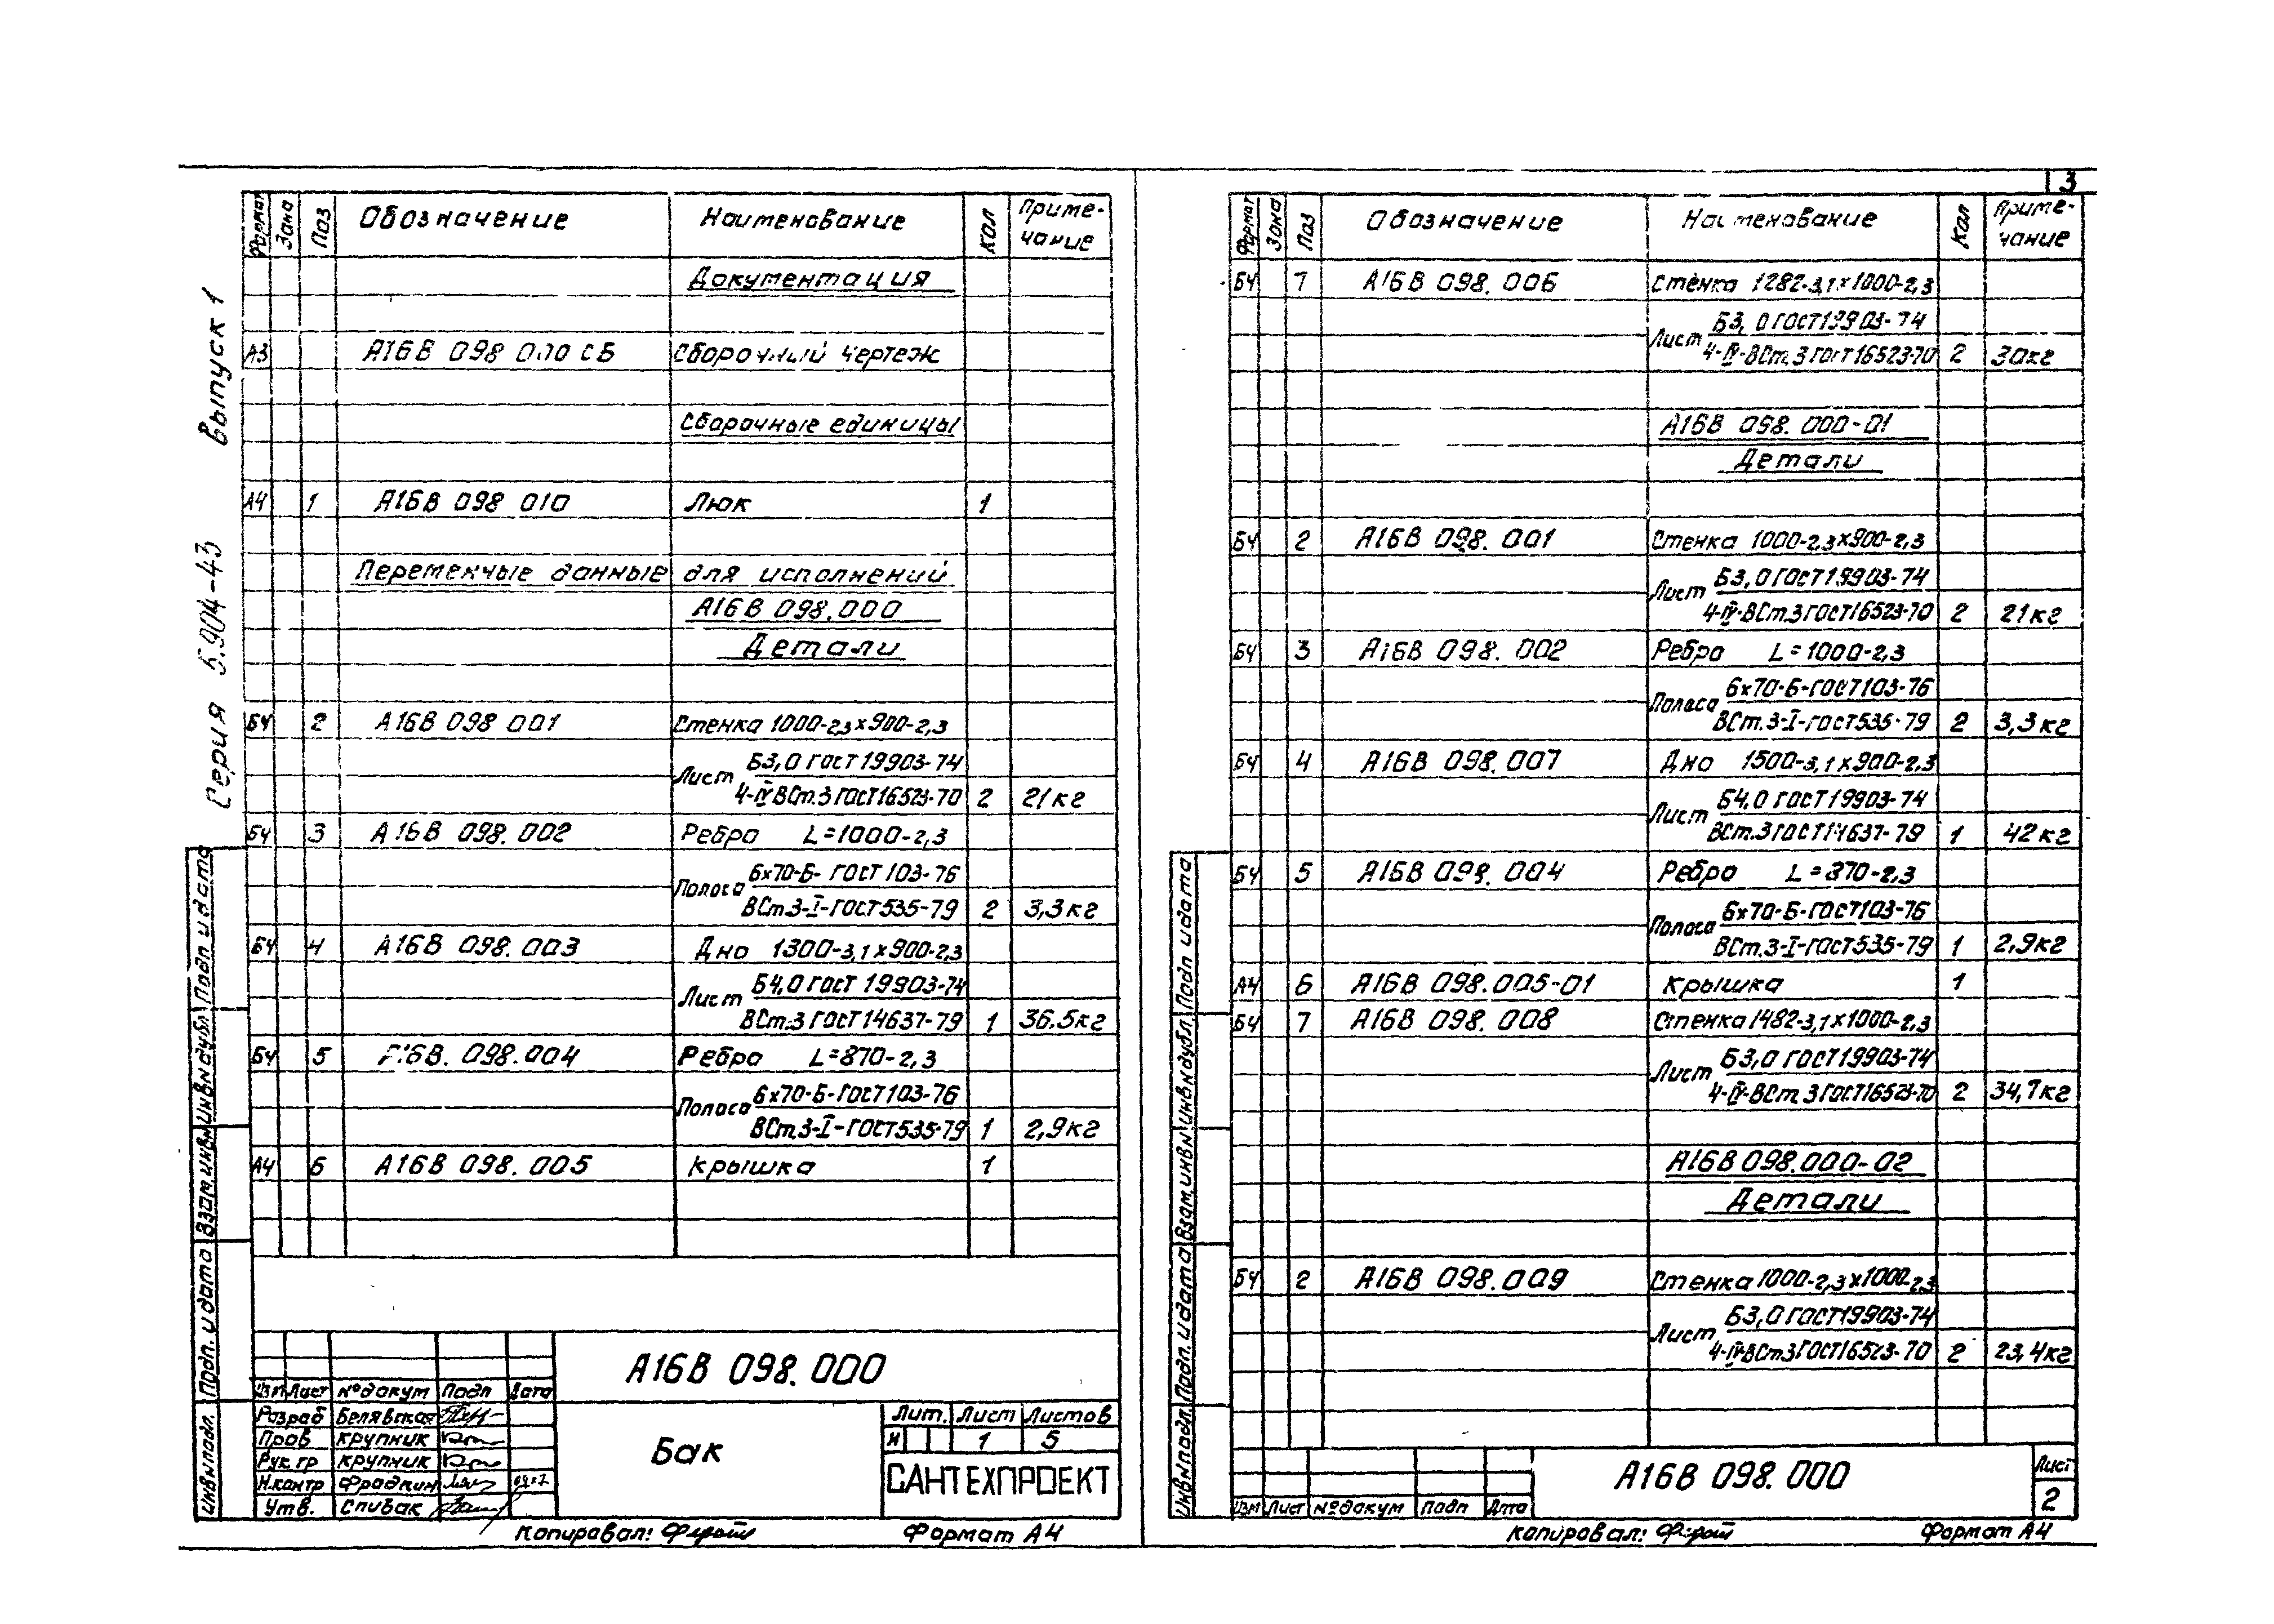 3
Серия 5.904-43 Выпуск 1
Формат Зона Поз Обозначение Наименование Кол Приме-
чание
Документация
А3 А16В 098 000 СБ Сборочный чертеж
Сборочные единицы
А4 1 А16В 098 010 Люк 1
Переменные данные для исполнений
А16В 098.000
Детали
БЧ 2 А16В 098 001 Стенка 1000-2,3×900-2,3
Лист Б3,0 ГОСТ 19903-74
4-IV ВСт.3 ГОСТ 16523-70 2 21кг
БЧ 3 А16В 098.002 Ребро L=1000-2,3
Полоса 6×70-Б- ГОСТ 103-76
ВСт3-I-ГОСТ 535-79 2 3,3кг
БЧ 4 А16В 098.003 Дно 1300-3,1×900-2,3
Лист Б4,0 ГОСТ 19903-74
ВСт.3 ГОСТ 14637-79 1 36.5кг
БЧ 5 А16В. 098.004 Ребро L=870-2,3
Полоса 6×70-Б-ГОСТ103-76
ВСт.3-I-ГОСТ535-79 1 2,9кг
А4 6 А16В 098.005 Крышка 1
Подп и дата
Инв N дубл
Взам. инв N
Подп. и дата
Инв N подл.
А16В 098.000
Изм Лист № докум Подп Дата
Разраб Белявская
Пров Крупник
Рук.гр Крупник
Н.контр Фрадкин
Утв. Спивак
Бак
Лит. Лист Листов
И 1 5
САНТЕХПРОЕКТ
Копировал: Формат А4
Формат Зона Поз Обозначение Наименование Кол Приме-
чание
БЧ 7 А16В 098. 006 Стенка 1282-3,1×1000-2,3
Лист Б3,0 ГОСТ19903-74
4-IV-ВСт.3 ГОСТ16523-70 2 30кг
А16В 098.000-01
Детали
БЧ 2 А16В 098. 001 Стенка 1000-2,3×900-2,3
Лист Б3,0 ГОСТ19903-74
4-IV-ВСт.3 ГОСТ16523-70 2 21кг
БЧ 3 А16В 098. 002 Ребро L=1000-2,3
Полоса 6×70-Б-ГОСТ103-76
ВСт.3-I-ГОСТ535-79 2 3,3кг
БЧ 4 А16В 098.007 Дно 1500-3,1×900-2,3
Лист Б4,0 ГОСТ19903-74
ВСт.3 ГОСТ14637-79 1 42кг
БЧ 5 А16В 098. 004 Ребро L=870-2,3
Полоса 6×70-Б-ГОСТ103-76
ВСт.3-I-ГОСТ535-79 1 2,9кг
А4 6 А16В 098.005-01 Крышка 1
БЧ 7 А16В 098. 008 Стенка 1482-3,1×1000-2,3
Лист Б3,0 ГОСТ19903-74
4-IV-ВСт.3 ГОСТ16523-70 2 34,7кг
А16В 098.000-02
Детали
БЧ 2 А16В 098.009 Стенка 1000-2,3×1000-2,3
Лист Б3,0 ГОСТ19903-74
4-IV-ВСт3 ГОСТ16523-70 2 23,4кг
Подп и дата
Инв N дубл.
Взам. инв N
Подп. и дата
Инв N подл.
Изм Лист № докум Подп Дата
А16В 098.000
Лист
2
Копировал: Формат А4